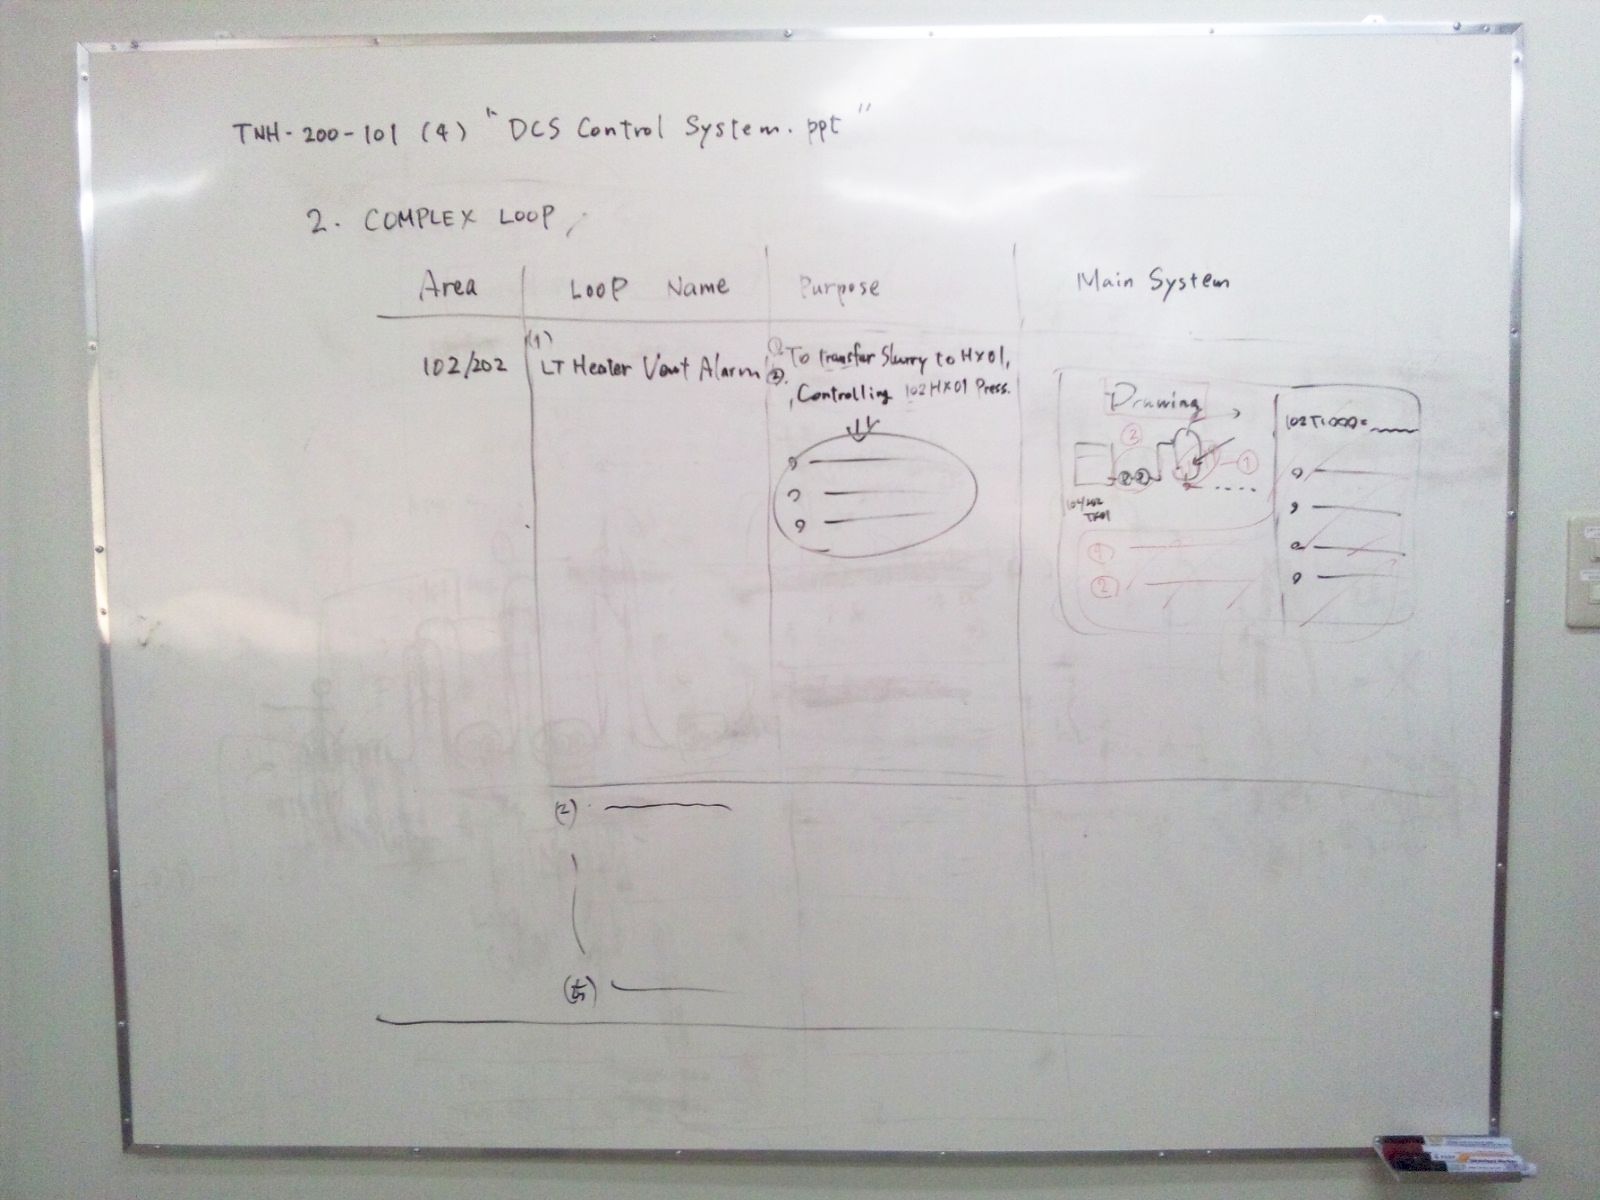 TNH-200-101 (4) "DCS Control System.ppt"
2. COMPLEX LOOP
Area LOOP Name Purpose Main System
102/202 (1) LT Heater Vent Alarm ① To transfer Slurry to HX01,
②. Controlling 102HX01 Press.
Drawing
②
①
TK01
①
②
(2)